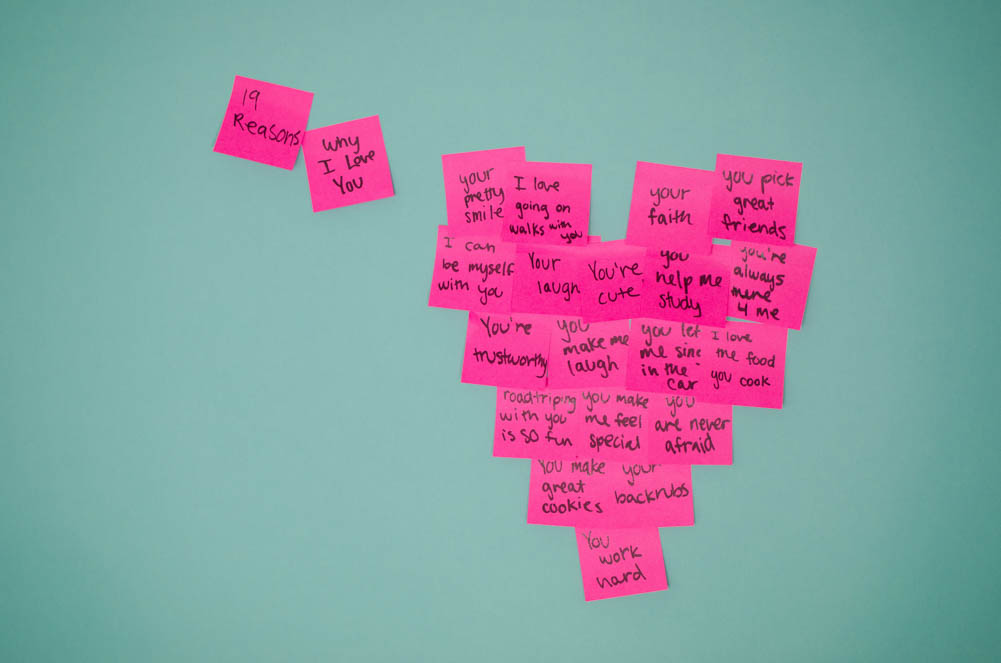 19
Reasons
Why
I Love
You
your
pretty
smile
I love
going on
walks with
you
your
faith
you pick
great
friends
I can
be myself
with you
Your
laugh
You're
cute
you
help me
study
you're
always
there
4 me
You're
trustworthy
you
make me
laugh
you let
me sing
in the
car
I love
the food
you cook
road-triping
with you
is so fun
you make
me feel
special
you
are never
afraid
You make
great
cookies
your
backrubs
You
work
hard